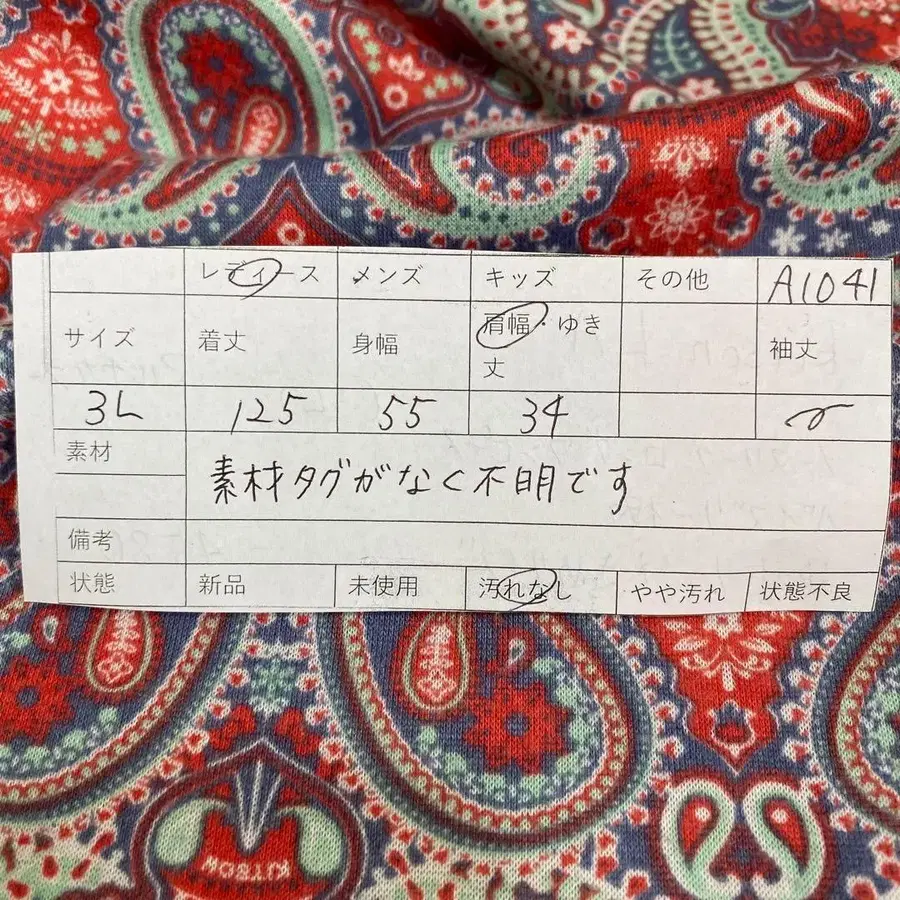 レディース メンズ キッズ その他 A1041
サイズ 着丈 身幅 肩幅・ゆき丈 袖丈
3L 125 55 34
素材 素材タグがなく不明です
備考
状態 新品 未使用 汚れなし やや汚れ 状態不良
KITSON